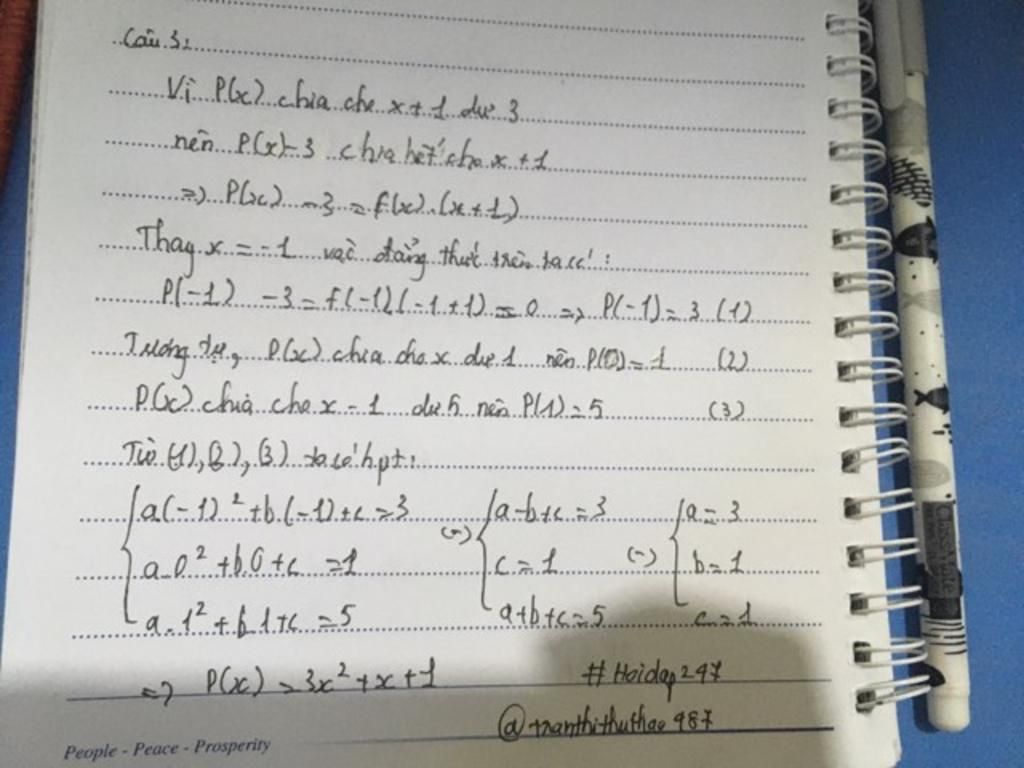 Câu 3:
Vì P(x) chia cho x+1 dư 3
nên P(x)-3 chia hết cho x+1
=> P(x) -3 = f(x).(x+1)
Thay x = -1 vào đẳng thức trên ta có:
P(-1) -3 = f(-1)(-1+1) = 0 => P(-1) = 3 (1)
Tương tự, P(x) chia cho x dư 1 nên P(0) = 1 (2)
P(x) chia cho x - 1 dư 5 nên P(1) = 5 (3)
Từ (1), (2), (3) ta có hpt:
a(-1)²+b.(-1)+c = 3 (=) a-b+c = 3 (=) a = 3
a.0²+b.0+c = 1 c = 1 b = 1
a.1²+b.1+c = 5 a+b+c = 5 c = 1
=> P(x) = 3x²+x+1 #Hoidap247
@tranthithuthao987
People - Peace - Prosperity